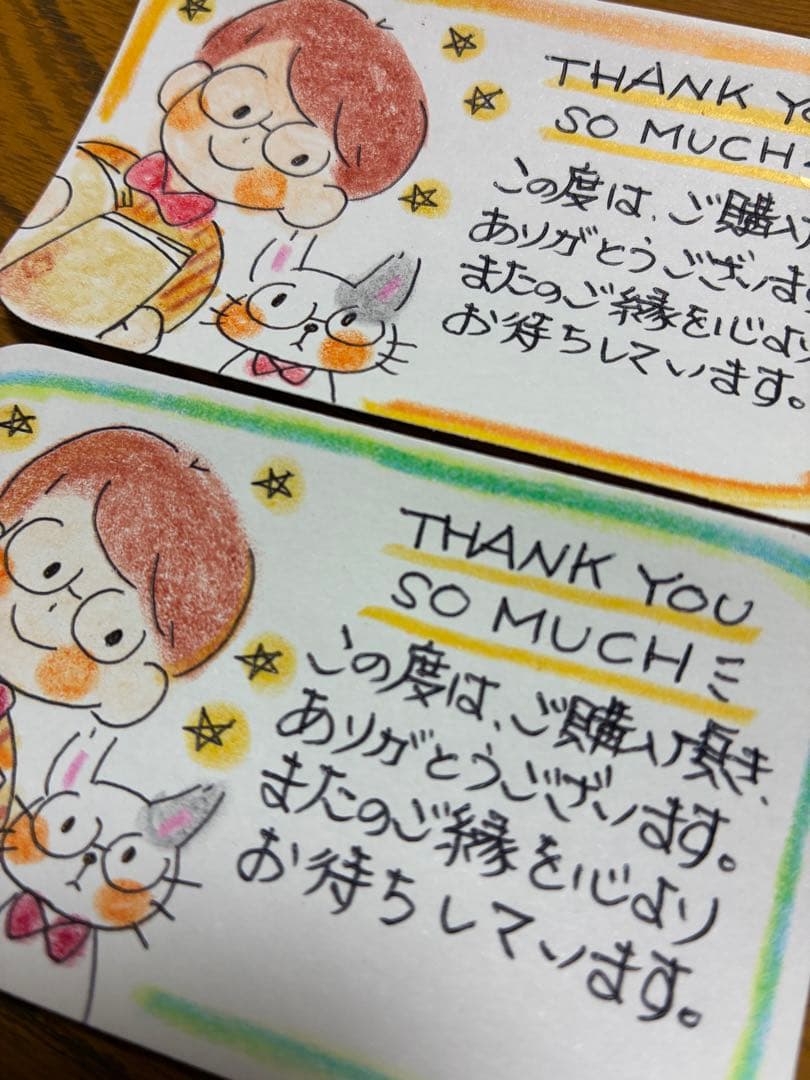 THANK YO
SO MUCH
この度は、ご購入
ありがとうございます
またのご縁を心より
お待ちしています。
THANK YOU
SO MUCH
この度は、ご購入頂き、
ありがとうございます。
またのご縁を心より
お待ちしています。